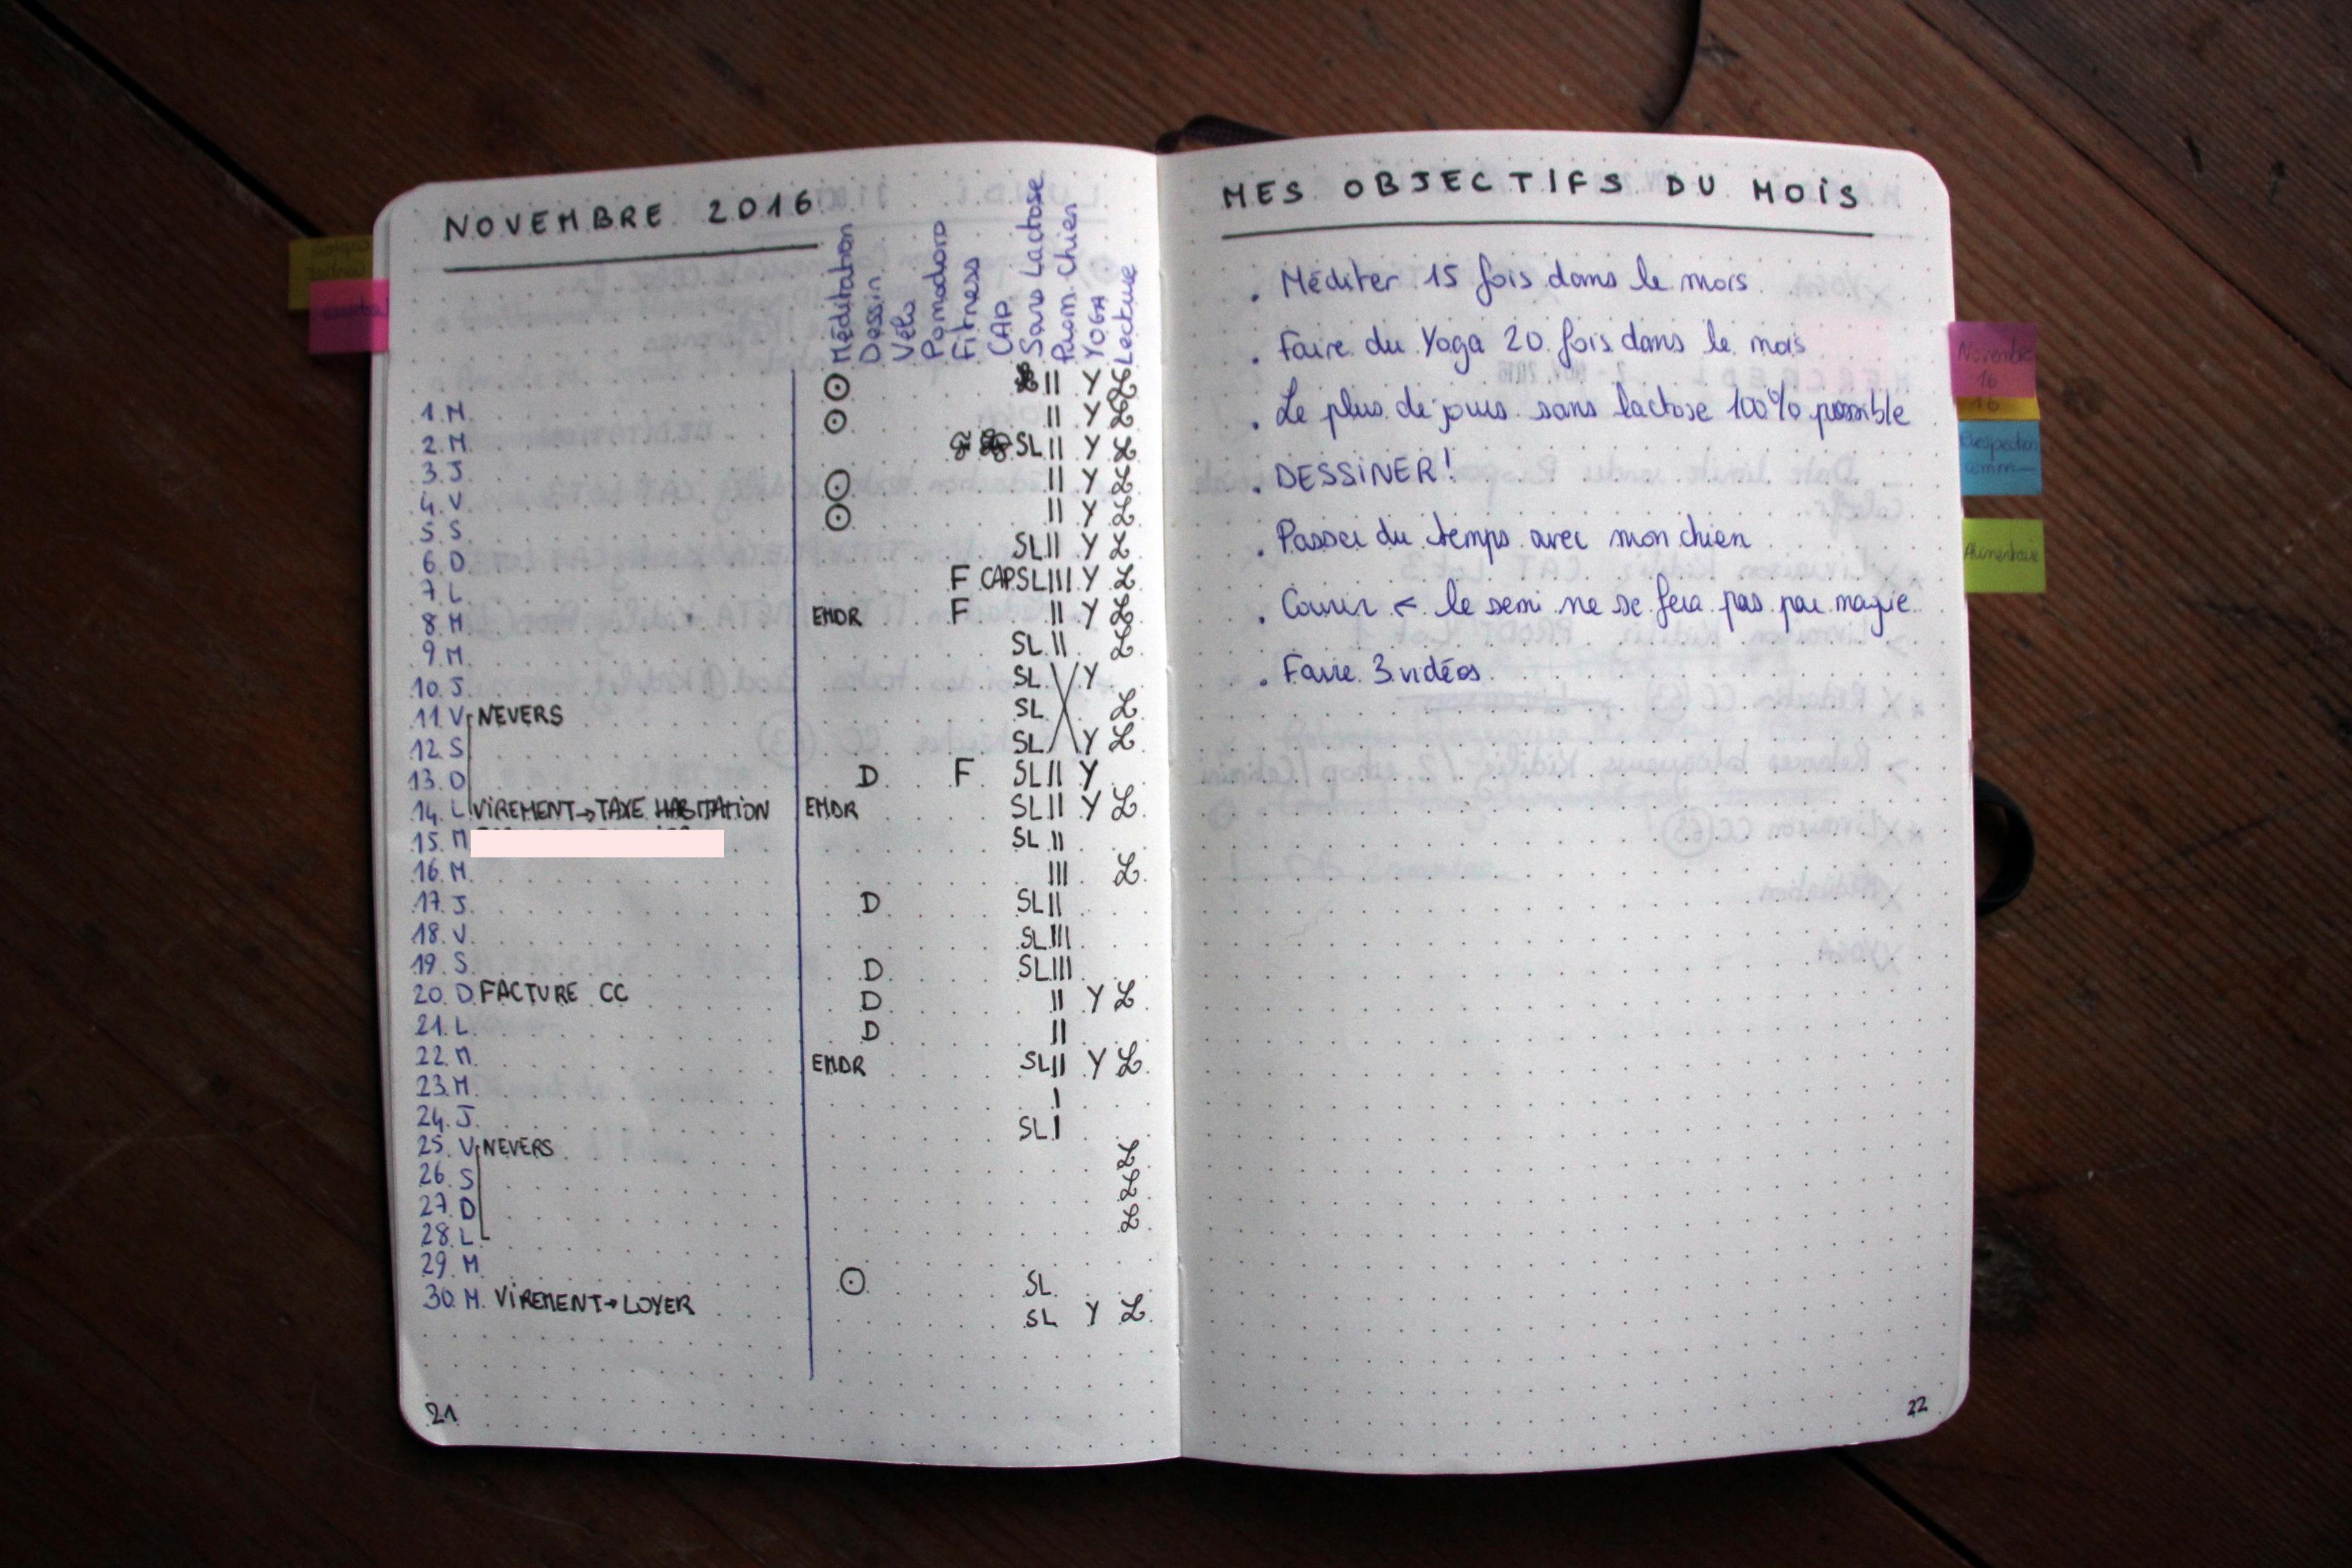 NOVEMBRE 2016
Méditation
Dessin
Vélo
Pomodoro
Fitness
CAP
Sans Lactose
Prom. Chien
YOGA
Lecture
II Y L
1. M.
II Y L
2. M.
SL II Y L
3. J.
II Y L
4. V
II Y L
5. S.
SL II Y L
6. D
F CAP SL III Y L
7. L
EMDR F II Y L
8. M
SL II L
9. M
SL Y
10. J.
SL L
11. V NEVERS
SL Y L
12. S
D F SL II Y
13. D
EMDR SL II Y L
14. L VIREMENT → TAXE HABITATION
SL II
15. M
III L
16. M.
D SL II
17. J.
SL III
18. V.
D SL III
19. S.
D II Y L
20. D FACTURE CC
D II
21. L.
EMDR SL II Y L
22. M.
I
23. M.
SL I
24. J.
L
25. V NEVERS
L
26. S
L
27. D
28. L
29. M
SL
30. M. VIREMENT → LOYER
SL Y L
21
MES OBJECTIFS DU MOIS
. Méditer 15 fois dans le mois
. Faire du Yoga 20 fois dans le mois
. Le plus de jours sans lactose 100% possible
. DESSINER!
. Passer du temps avec mon chien
. Courir ← le semi ne se fera pas par magie
. Faire 3 vidéos
22
Novembre
16
16
Prospection
Alimentaire